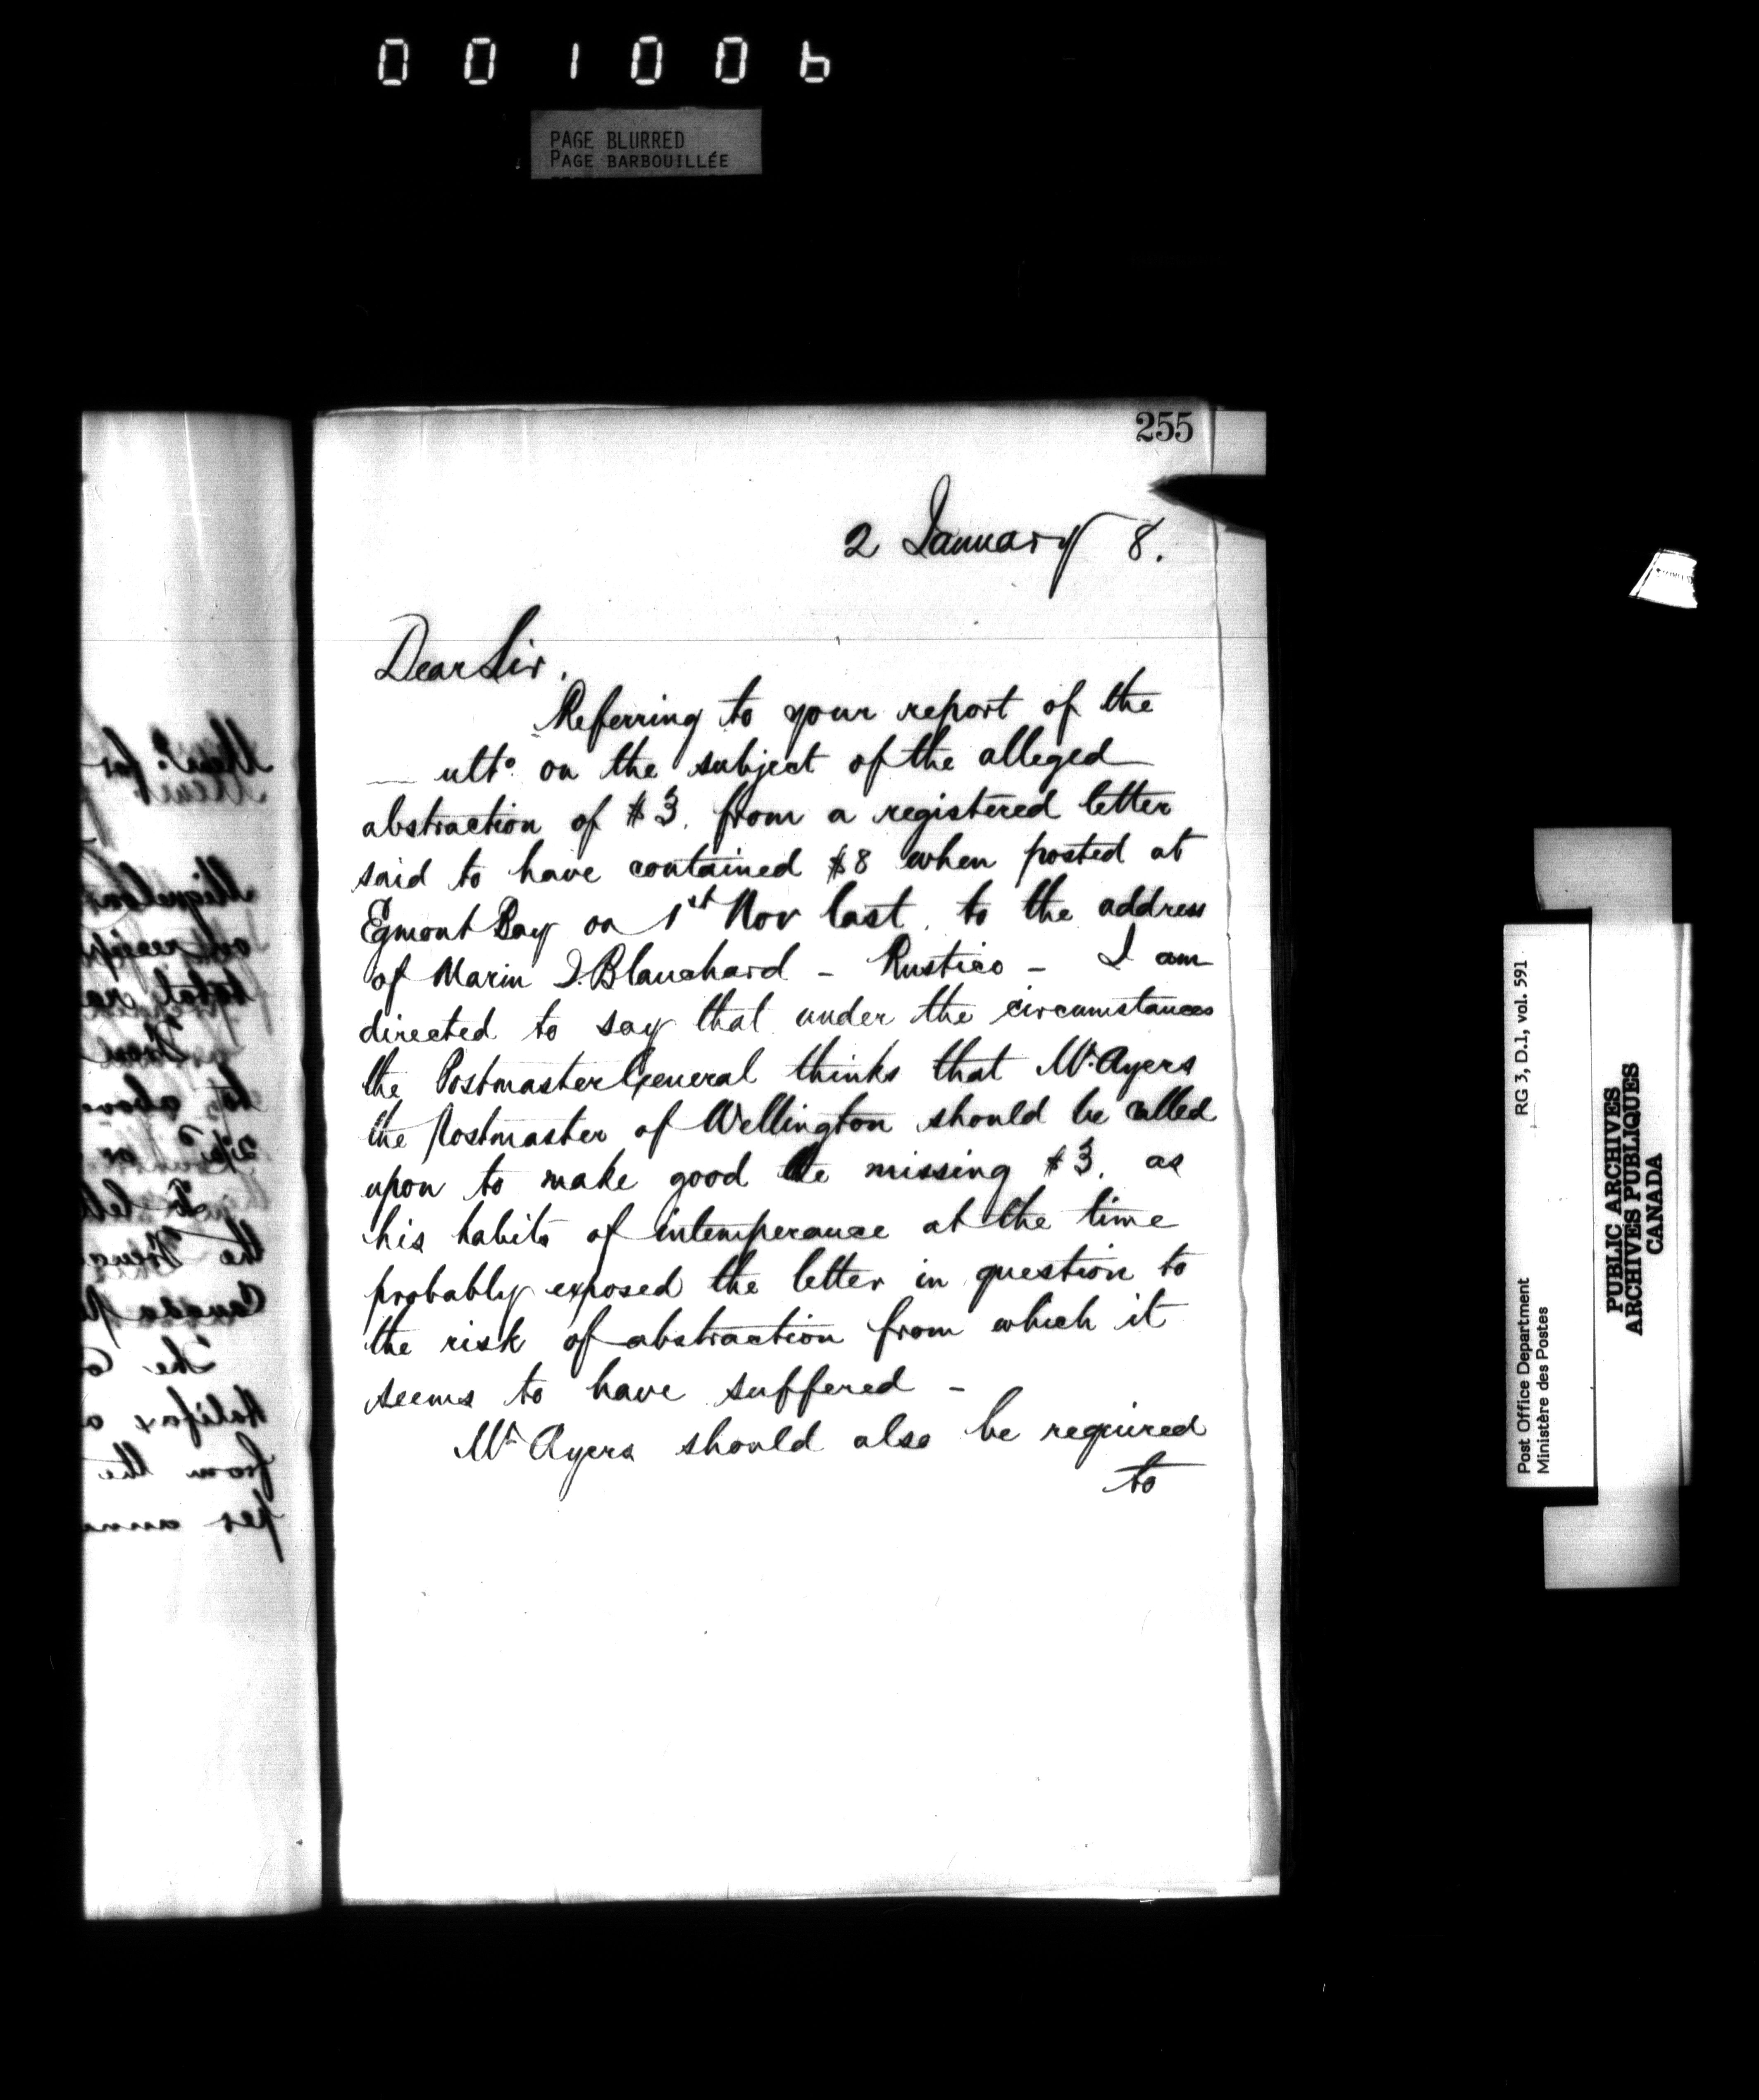 001006
PAGE BLURRED
PAGE BARBOUILLÉE
255
2 January 8.
Dear Sir.
Referring to your report of the
— ulto on the subject of the alleged
abstraction of $3. from a registered letter
said to have contained $8 when posted at
Egmont Bay on 1st Nov last. to the address
of Marin J. Blanchard - Rustico - I am
directed to say that under the circumstances
the Postmaster General thinks that Mr. Ayers
the Postmaster of Wellington should be called
upon to make good the missing $3. as
his habits of intemperance at the time
probably exposed the letter in question to
the risk of abstraction from which it
seems to have suffered -
Mr Ayers should also be required
to
Halifax
from the
RG 3, D.1, vol. 591
Post Office Department
Ministère des Postes
PUBLIC ARCHIVES
ARCHIVES PUBLIQUES
CANADA